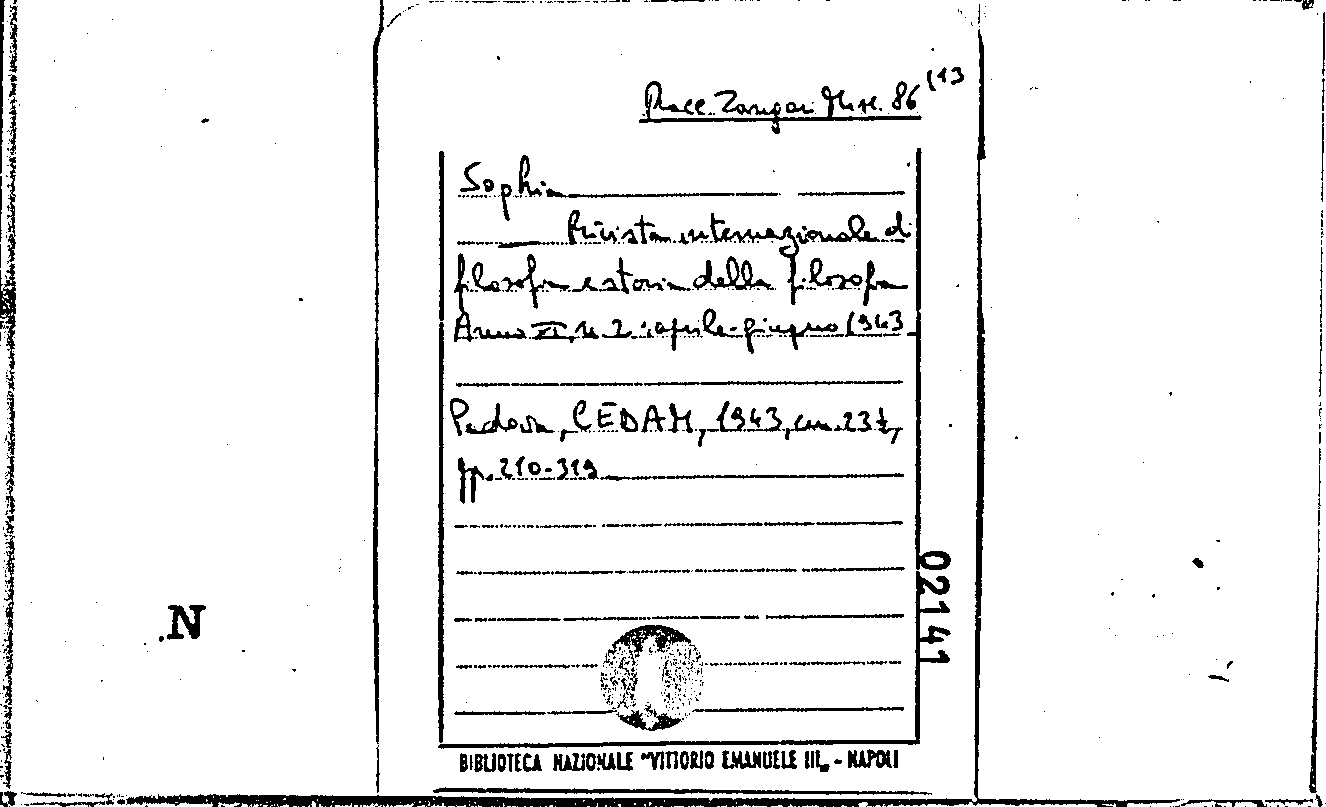 Racc. Zangari Misc. 86 (13
Sophia
Rivista internazionale di
filosofia e storia della filosofia
Anno XI, n. 2: aprile-giugno 1943
Padova, CEDAM, 1943, cm. 23½,
pp. 210-319
02141
.N
BIBLIOTECA NAZIONALE "VITTORIO EMANUELE III„ - NAPOLI